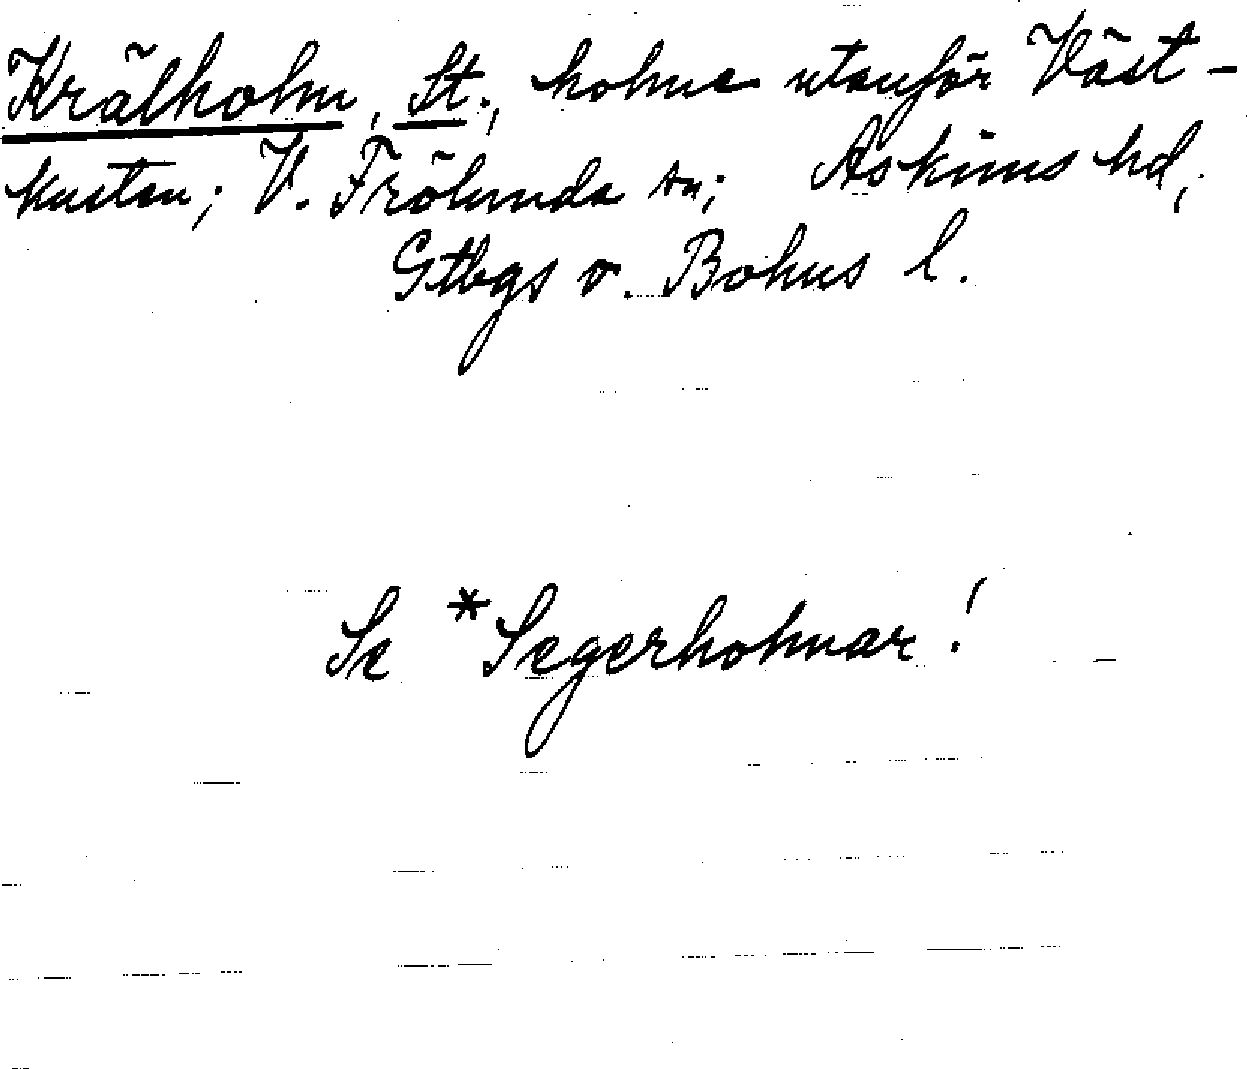 Krälholm, St., holme utanför Väst-
kusten; V. Frölunda sn; Askims hd,
Gtbgs o. Bohus l.
Se *Segerholmar!